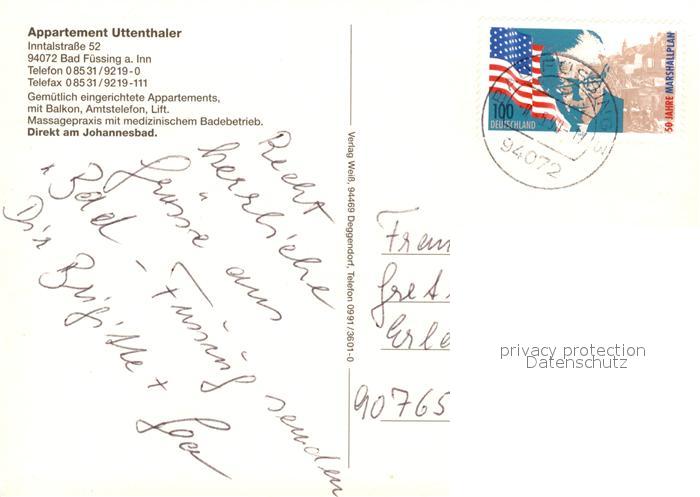 Appartement Uttenthaler
Inntalstraße 52
94072 Bad Füssing a. Inn
Telefon 0 85 31 / 92 19 - 0
Telefax 0 85 31 / 92 19 -111
Gemütlich eingerichtete Appartements,
mit Balkon, Amtstelefon, Lift.
Massagepraxis mit medizinischem Badebetrieb.
Direkt am Johannesbad.
Recht
herrliche
Grüsse aus
Bad - Füssing senden
Dir Brigitte +
Verlag Weiß, 94469 Deggendorf, Telefon 0991/3601-0
100
DEUTSCHLAND
50 JAHRE MARSHALLPLAN
94072
Frau
Gret
Erle
90765
privacy protection
Datenschutz